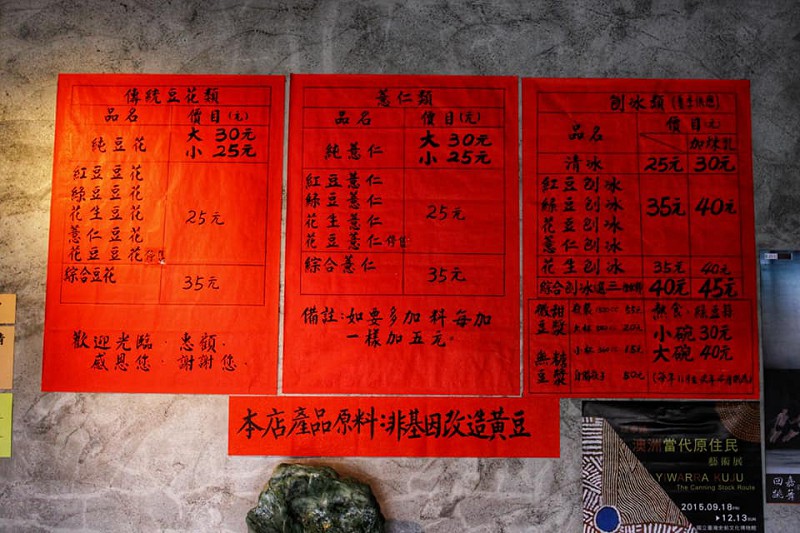 傳統豆花類
品名 價目(元)
純豆花 大 30元
小 25元
紅豆豆花
綠豆豆花
花生豆花 25元
薏仁豆花
花豆豆花 停售
綜合豆花 35元
歡迎光臨．惠顧．
感恩您．謝謝您．
薏仁類
品名 價目(元)
純薏仁 大 30元
小 25元
紅豆薏仁
綠豆薏仁
花生薏仁 25元
花豆薏仁 停售
綜合薏仁 35元
備註:如要多加料每加
一樣加五元。
刨冰類
品名 價目(元)
加煉乳
清冰 25元 30元
紅豆刨冰
綠豆刨冰 35元 40元
花豆刨冰
薏仁刨冰
花生刨冰 35元 40元
綜合刨冰選三 40元 45元
微甜
豆漿
無糖
豆漿
55元
20元
15元
50元
熱食:綠豆蒜
小碗 30元
大碗 40元
本店產品原料:非基因改造黃豆
澳洲當代原住民
藝術展
YIWARRA KUJU
The Canning Stock Route
2015.09.18
12.13
國立臺灣史前文化博物館
回嘉
跳舞